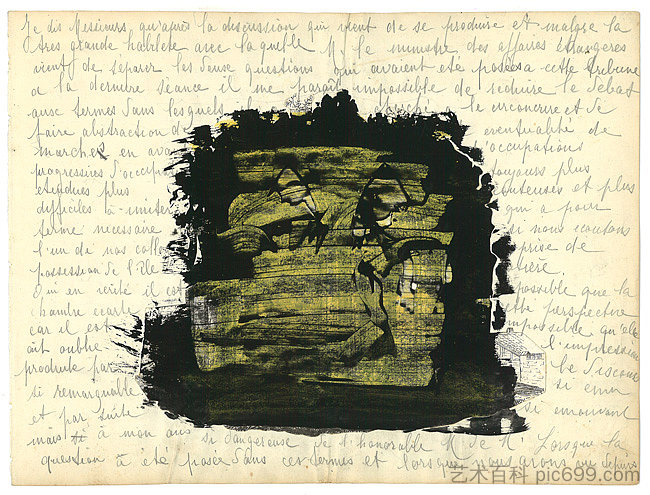 Je dis Messieurs qu'après la discussion qui vient de se produire et malgré la
très grande habileté avec laquelle M. le ministre des affaires étrangères
vient de séparer les deux questions qui avaient été posées a cette tribune
a la dernière séance il me paraît impossible de réduire le débat
aux termes dans lesquels circonscrire et de
faire abstraction de eventualité de
marcher en ava d'occupations
progressives d'occupa toujours plus
étendues plus couteuses et plus
difficiles à limiter qui a pour
terme nécessaire si nous écoutons
l'un de nos collo prise de
possession de l'Ile entière.
Qui en vérité il est possible que la
chambre écarte cette perspective
car il est impossible qu'elle
ait oublié l'impression
produite par le discours
si remarquable si emou
et par suite si emouvant
mais à mon avis si dangereuse de l'honorable M. de M. Lorsque la
question à été posée dans ces termes et lorsque nous avons au dehors
艺术百科 pic699.com